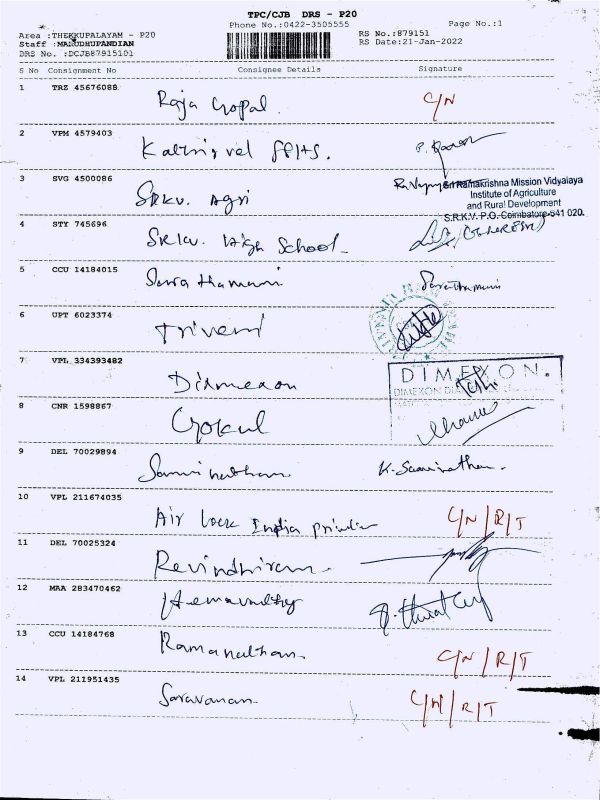 TPC/CJB DRS - P20
Phone No.:0422-3505555
Page No.:1
Area :THEKKUPALAYAM - P20
Staff :MALUDHUPANDIAN
DRS No. :DCJB87915101
RS No.:879151
RS Date:21-Jan-2022
S No Consignment No Consignee Details Signature
1 TRZ 45676088 Raja Gopal C/N
2 VPM 4579403 Kathirvel
3 SVG 4500086 SRKV. Agri
Sri Ramakrishna Mission Vidyalaya
Institute of Agriculture
and Rural Development
S.R.K.V. P.O. Coimbatore-641 020.
4 STY 745696 SRKV. High School
5 CCU 14184015
6 UPT 6023374 Triveni
7 VPL 334393482 Dimexon
DIMEXON
8 CNR 1598867 Gokul
9 DEL 70029894
10 VPL 211674035 Air lock India C/N/R/T
11 DEL 70025324
12 MAA 283470462
13 CCU 14184768 Ramanathan C/N/R/T
14 VPL 211951435 Saravanan C/N/R/T